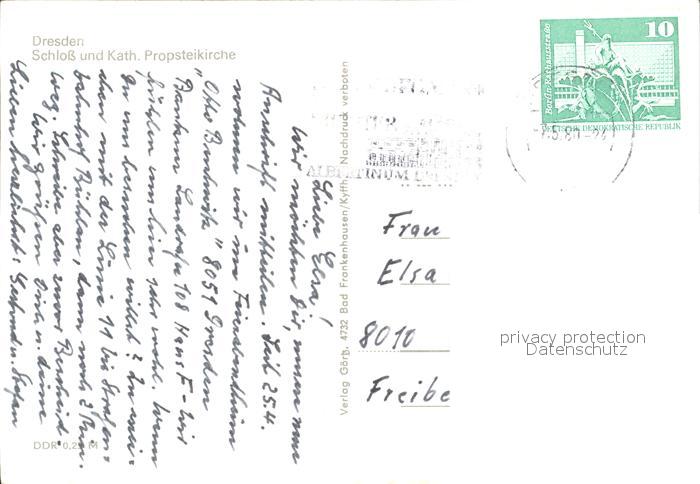 Dresden
Schloß und Kath. Propsteikirche
Liebe Elsa!
Wir möchten Dir, unsere neue
Anschrift mitteilen. Seit 25.4.
wohnen wir im Feierabendheim
"Otto Buchwitz" 8051 Dresden
Bautzner Landstraße 108 Haus F - Wir
fühlen uns hier sehr wohl. Wenn
Du uns besuchen willst? Du
aber mit der Linie 11 bis Straßen-
bahnhof Bühlau, dann noch 2 Min.
weg. Schreibe aber zuvor Bescheid.
Wir grüßen Dich u. deine
Lieben herzlichst:
DDR 0,25 M
Verlag Görtz, 4732 Bad Frankenhausen/Kyffh. Nachdruck verboten
ALBERTINUM
Berlin, Rathausstraße
10
DEUTSCHE DEMOKRATISCHE REPUBLIK
Frau
Elsa
8010
Freibe
privacy protection
Datenschutz